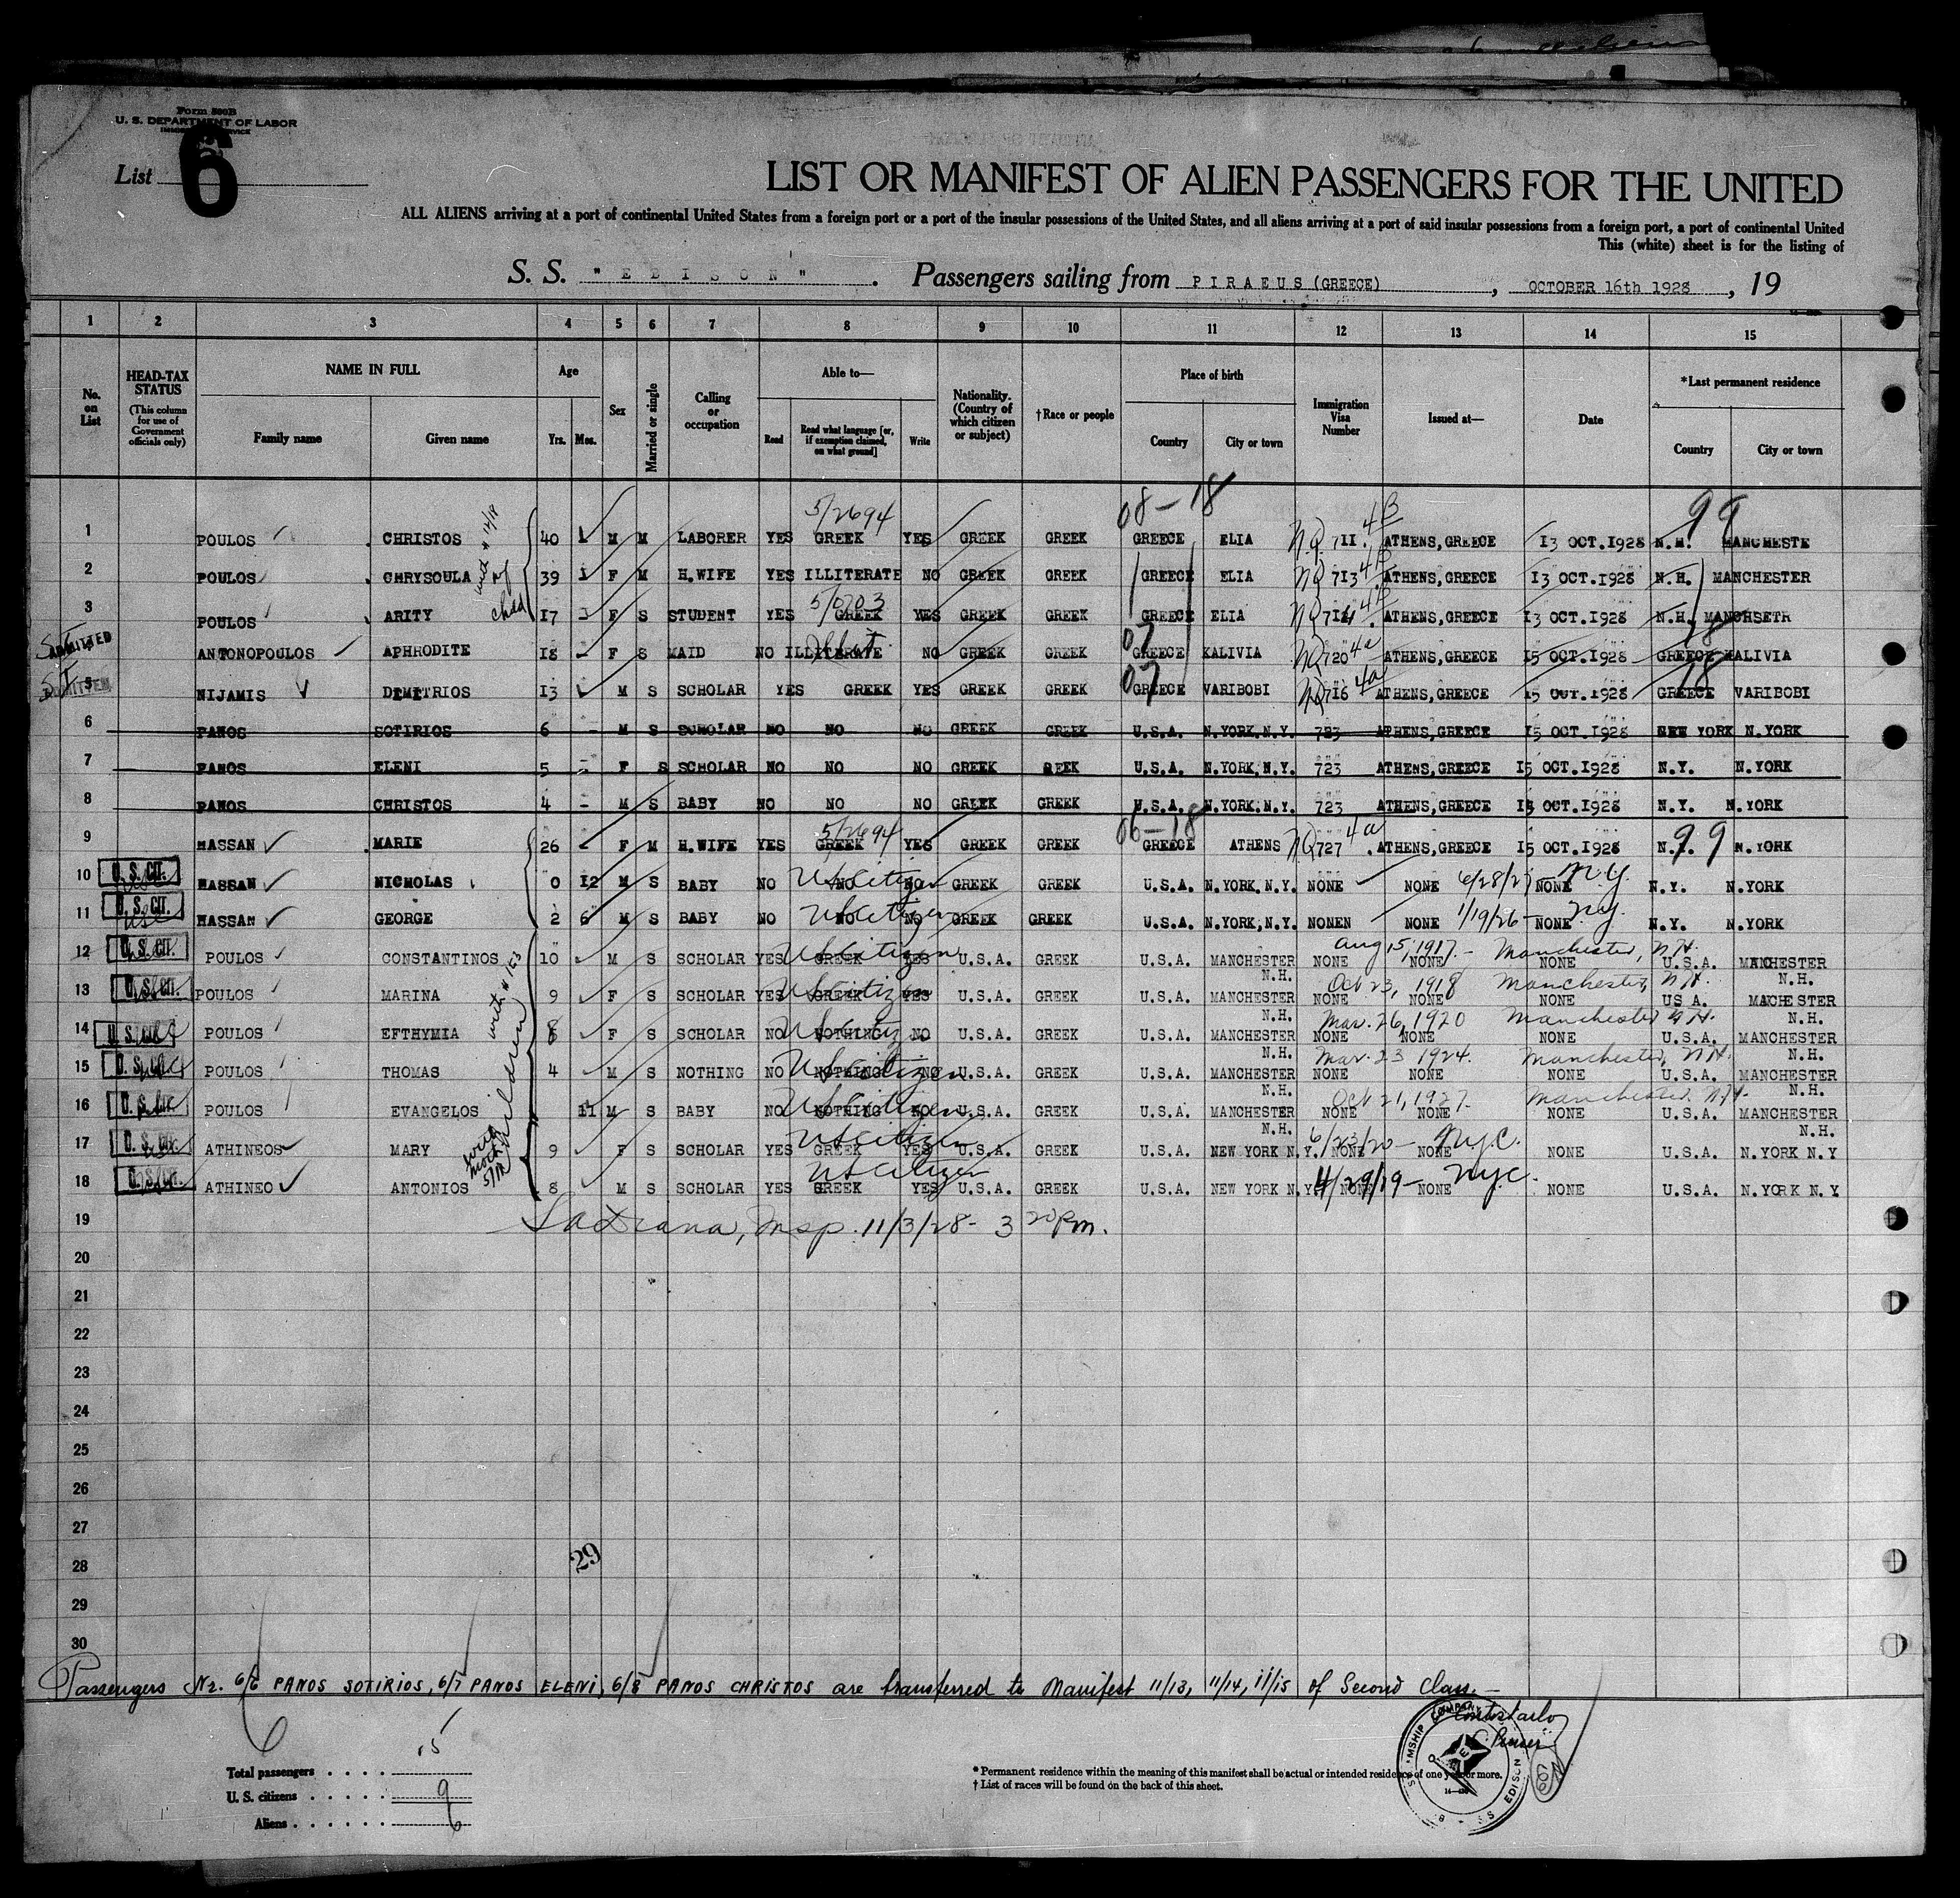 Form 500B
U. S. DEPARTMENT OF LABOR
List 6
LIST OR MANIFEST OF ALIEN PASSENGERS FOR THE UNITED
ALL ALIENS arriving at a port of continental United States from a foreign port or a port of the insular possessions of the United States, and all aliens arriving at a port of said insular possessions from a foreign port, a port of continental United
This (white) sheet is for the listing of
S. S. "EDISON". Passengers sailing from PIRAEUS (GREECE), OCTOBER 16th 1928, 19
1 2 3 4 5 6 7 8 9 10 11 12 13 14 15
No. on List
HEAD-TAX STATUS (This column for use of Government officials only)
NAME IN FULL Family name Given name
Age Yrs. Mos.
Sex
Married or single
Calling or occupation
Able to— Read Read what language [or, if exemption claimed, on what ground] Write
Nationality. (Country of which citizen or subject)
†Race or people
Place of birth Country City or town
Immigration Visa Number
Issued at—
Date
*Last permanent residence Country City or town
08-18 99
5/2694 4B
1 POULOS CHRISTOS 40 M M LABORER YES GREEK YES GREEK GREEK GREECE ELIA NQ 711. ATHENS,GREECE 13 OCT.1928 N.H. MANCHESTE
2 POULOS CHRYSOULA 39 F M H.WIFE YES ILLITERATE NO GREEK GREEK GREECE ELIA NQ 713 4B ATHENS,GREECE 13 OCT.1928 N.H. MANCHESTER
5/0703
3 POULOS ARITY 17 F S STUDENT YES GREEK YES GREEK GREEK GREECE ELIA NQ 714 4B ATHENS,GREECE 13 OCT.1928 N.H. MANCHSETR
ADMITTED ANTONOPOULOS APHRODITE 18 - F S MAID NO ILLITERATE NO GREEK GREEK 07 GREECE KALIVIA NQ 720 4a ATHENS,GREECE 15 OCT.1928 GREECE KALIVIA
5 NIJAMIS DIMITRIOS 13 M S SCHOLAR YES GREEK YES GREEK GREEK 07 GREECE VARIBOBI NQ 716 4a ATHENS,GREECE 15 OCT.1928 GREECE VARIBOBI
6 PANOS SOTIRIOS 6 - M S SCHOLAR NO NO NO GREEK GREEK U.S.A. N.YORK.N.Y. 723 ATHENS,GREECE 15 OCT.1928 NEW YORK N.YORK
7 PANOS ELENI 5 - F S SCHOLAR NO NO NO GREEK REEK U.S.A. N.YORK,N.Y. 723 ATHENS,GREECE 15 OCT.1928 N.Y. N.YORK
8 PANOS CHRISTOS 4 - M S BABY NO NO NO GREEK GREEK U.S.A. N.YORK.N.Y. 723 ATHENS,GREECE 15 OCT.1928 N.Y. N.YORK
5/2694 06-18 4a 99
9 HASSAN MARIE 26 F M H.WIFE YES GREEK YES GREEK GREEK GREECE ATHENS NQ 727 .ATHENS,GREECE 15 OCT.1928 N.Y. N.YORK
10 U.S.CIT. HASSAN NICHOLAS 0 12 M S BABY NO NO NO US citizen GREEK GREEK U.S.A. N.YORK,N.Y. NONE NONE 6/28/27 NONE N.Y. N.Y. N.YORK
11 U.S.CIT. HASSAN GEORGE 2 6 M S BABY NO NO NO US citizen GREEK GREEK U.S.A. N.YORK,N.Y. NONEN NONE 1/19/26 - NONE N.Y. N.Y. N.YORK
Aug 15, 1917. - Manchester, N.H.
12 U.S.CIT. POULOS CONSTANTINOS 10 M S SCHOLAR YES GREEK YES US citizen U.S.A. GREEK U.S.A. MANCHESTER N.H. NONE NONE NONE U.S.A. MANCHESTER N.H.
Oct 23, 1918 Manchester, N.H.
13 U.S.CIT. POULOS MARINA 9 F S SCHOLAR YES GREEK YES US citizen U.S.A. GREEK U.S.A. MANCHESTER N.H. NONE NONE NONE US A. MACHESTER N.H.
Mar. 26, 1920 Manchester N.H.
14 U.S.CIT. POULOS EFTHYMIA 8 F S SCHOLAR NO NOTHING NO US citizen U.S.A. GREEK U.S.A. MANCHESTER N.H. NONE NONE NONE U.S.A. MANCHESTER N.H.
Mar. 23 1924. Manchester, N.H.
15 U.S.CIT. POULOS THOMAS 4 M S NOTHING NO NOTHING NO US citizen U.S.A. GREEK U.S.A. MANCHESTER N.H. NONE NONE NONE U.S.A. MANCHESTER N.H.
Oct 21, 1927. Manchester N.H.
16 U.S.CIT. POULOS EVANGELOS 11 M S BABY NO NOTHING NO US citizen U.S.A. GREEK U.S.A. MANCHESTER N.H. NONE NONE NONE U.S.A. MANCHESTER N.H.
17 U.S.CIT. ATHINEOS MARY 9 F S SCHOLAR YES GREEK YES US citizen U.S.A. GREEK U.S.A. NEW YORK N.Y. 6/23/20 - N.Y.C. NONE NONE NONE U.S.A. N.YORK N.Y
18 U.S.CIT. ATHINEO ANTONIOS 8 M S SCHOLAR YES GREEK YES US citizen U.S.A. GREEK U.S.A. NEW YORK N.Y 4/29/19 - N.Y.C. NONE NONE NONE U.S.A. N.YORK N.Y.
children with #163
with mother
19 Insp. 11/3/28 - 3 20 PM.
20
21
22
23
24
25
26
27
28 29
29
30
Passengers Nr. 6/6 PANOS SOTIRIOS, 6/7 PANOS ELENI, 6/8 PANOS CHRISTOS are transferred to Manifest 11/13, 11/14, 11/15 of Second Class. -
Total passengers . . . . 15
U. S. citizens . . . . . 9
Aliens . . . . . . 6
* Permanent residence within the meaning of this manifest shall be actual or intended residence of one year or more.
† List of races will be found on the back of this sheet.